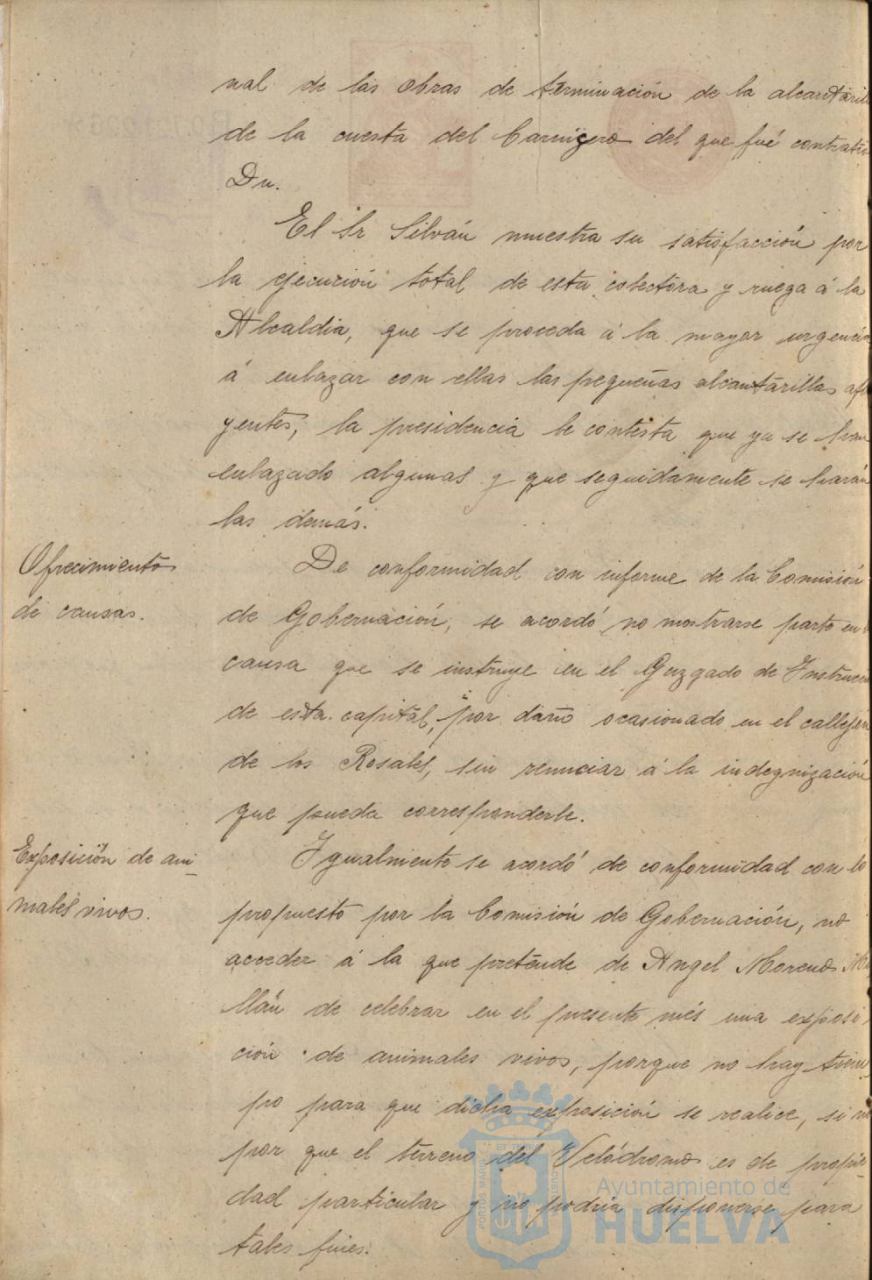 nal de las obras de terminación de la alcantarill
de la cuesta del Carnicero del que fué contratis
Dn.
El Sr Silván muestra su satisfacción por
la ejecución total de esta colectora y ruega á la
Alcaldia, que se proceda á la mayor urgencia
á enlazar con ellas las pequeñas alcantarillas aflu
yentes, la presidencia le contesta que ya se han
enlazado algunas y que seguidamente se harán
las demás.
Ofrecimiento
de causas.
De conformidad con informe de la Comisión
de Gobernación, se acordó no mostrarse parte en
causa que se instruye en el Juzgado de Instrucció
de esta capital, por daño ocasionado en el callejón
de los Rosales, sin renunciar á la indegnización
que pueda corresponderle.
Exposición de ani-
males vivos.
Igualmente se acordó de conformidad con lo
propuesto por la Comisión de Gobernación, no
acceder á la que pretende de Angel Moreno Mi
llán de celebrar en el presente més una exposi
ción de animales vivos, porque no hay tiem
po para que dicha exposición se realice, si no
por que el terreno del Velódromo es de propie
dad particular y no podría disponerse para
tales fines.
Ayuntamiento de
HUELVA